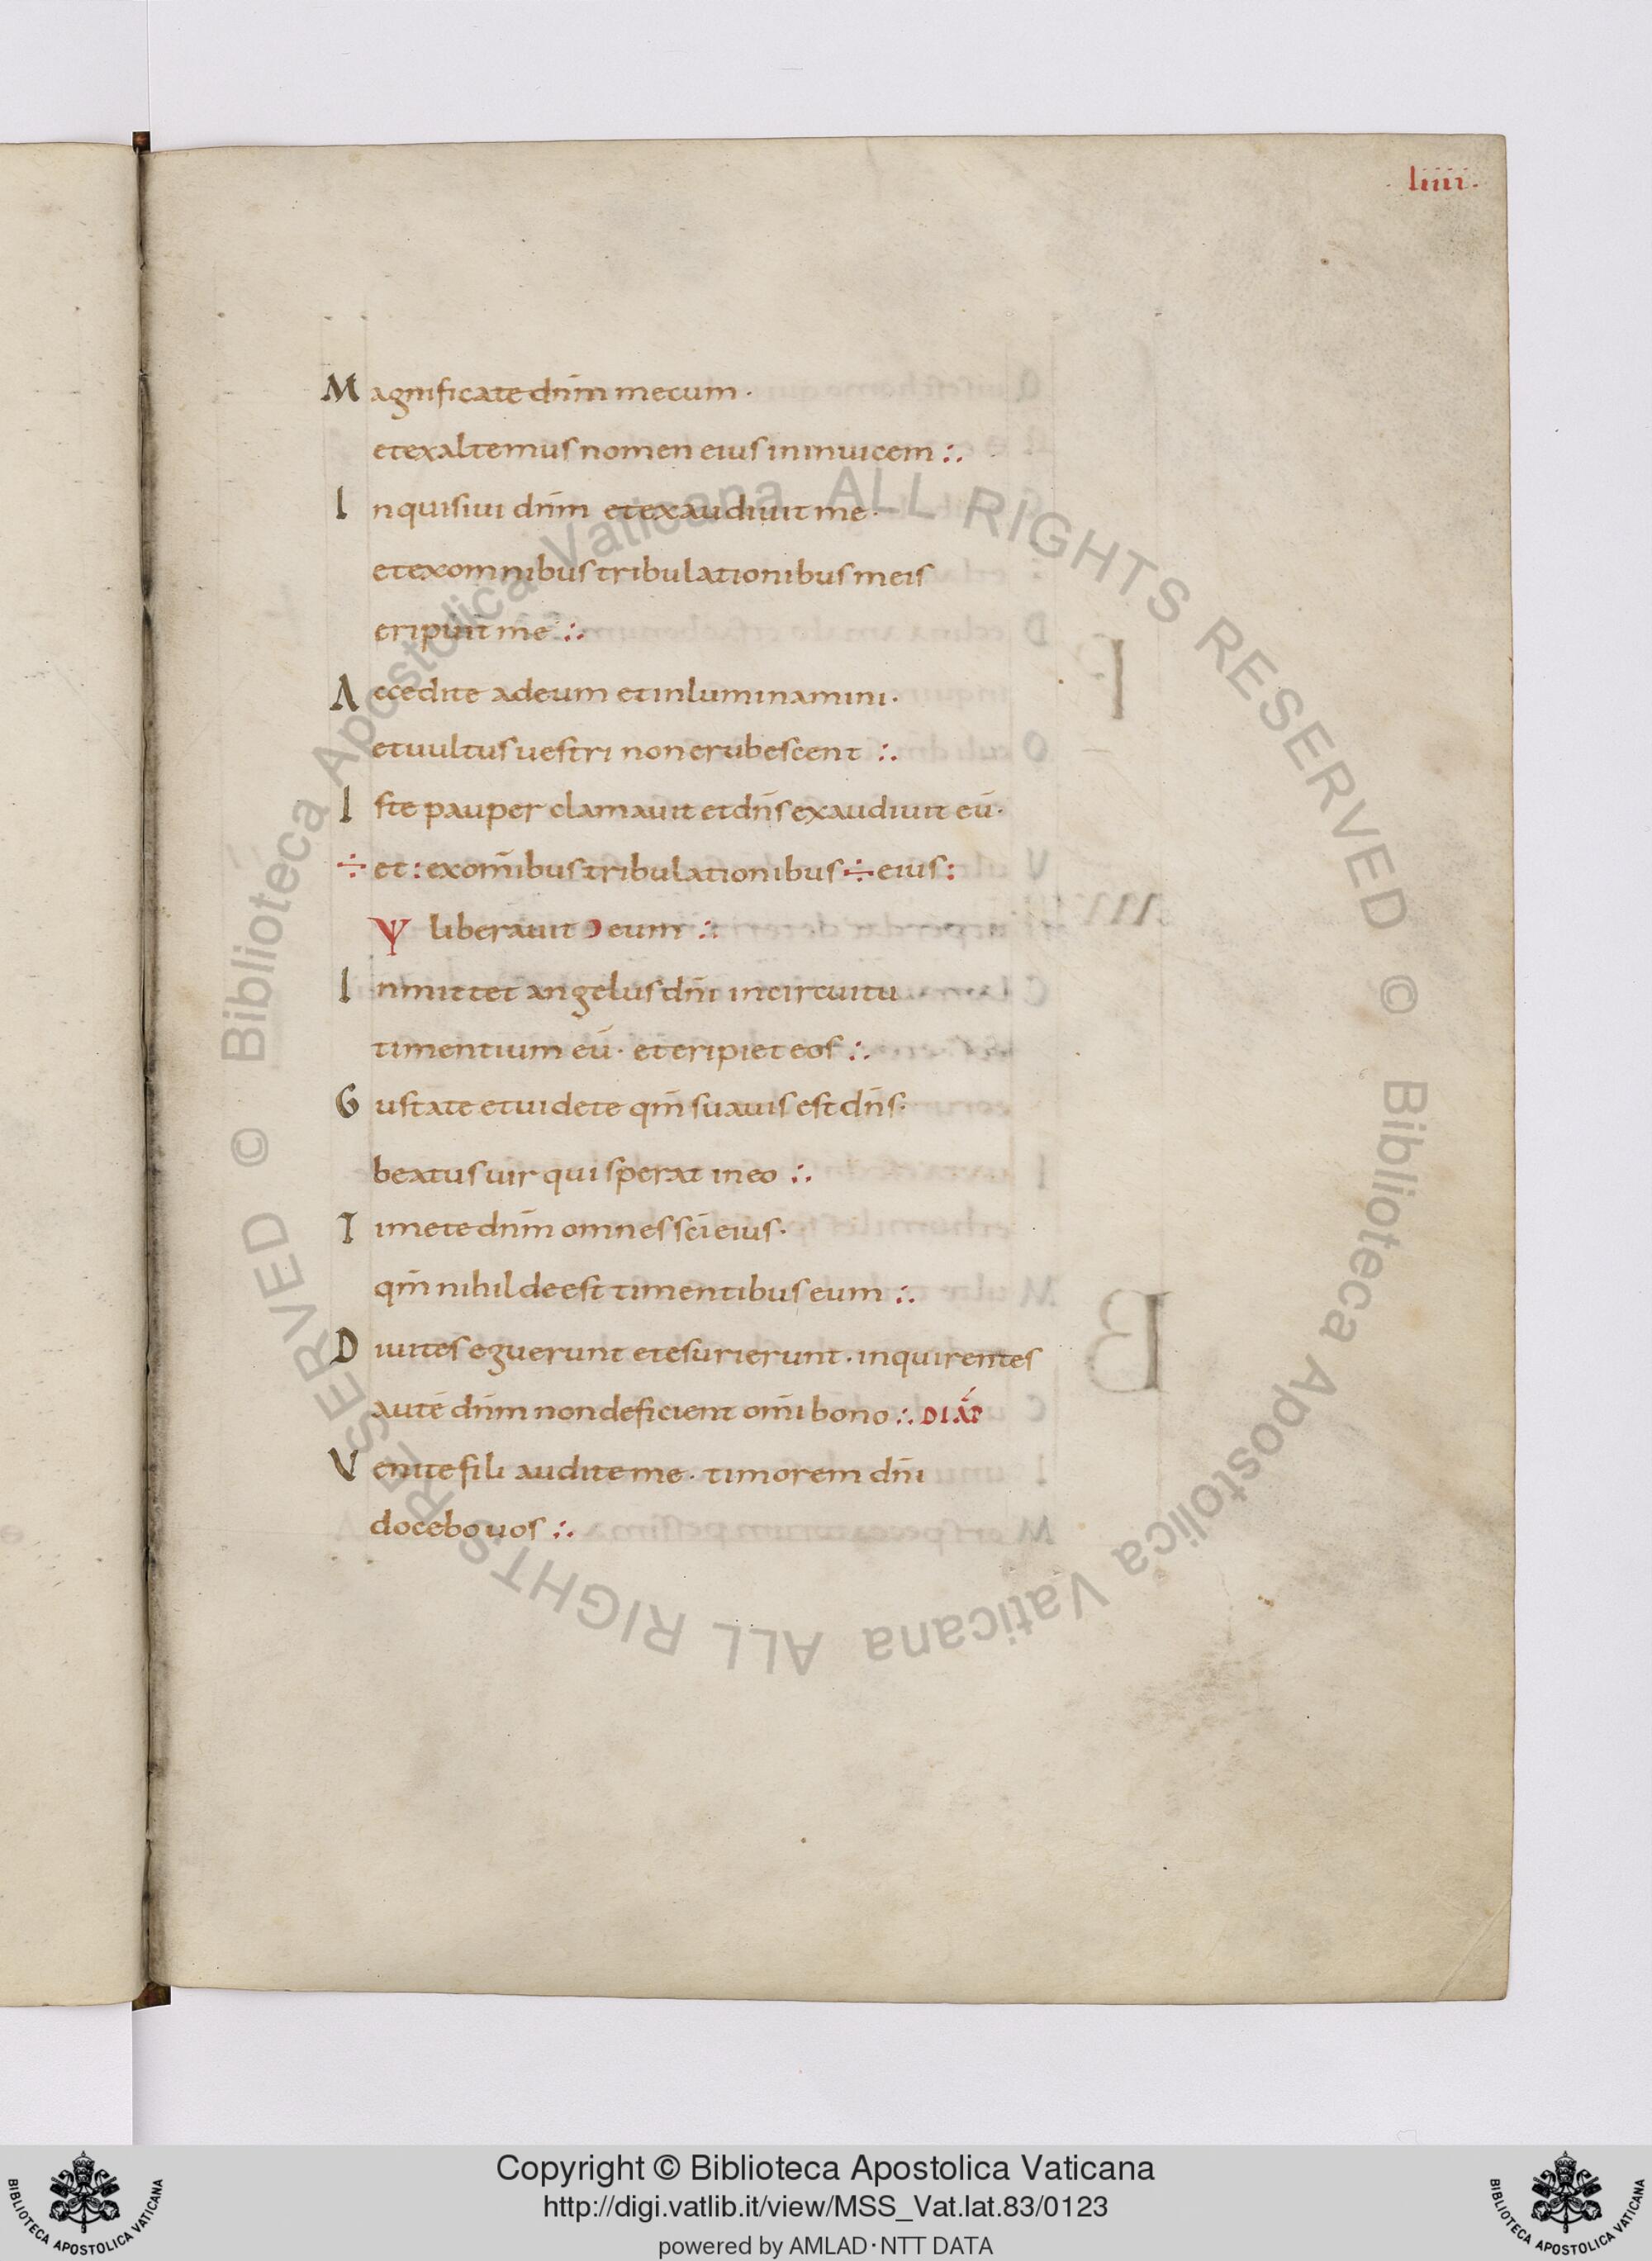 ·liiii·
Magnificate dn̄m mecum·
et exaltemus nomen eius in inuicem :.
Inquisiui dn̄m et exaudiuit me·
et ex omnibus tribulationibus meis
eripuit me :.
Accedite ad eum et inluminamini·
et uultus uestri non erubescent :.
Iste pauper clamauit et dn̄s exaudiuit eū·
÷ et : ex om̄ibus tribulationibus ÷ eius :
Ψ liberauit Ͻ eum :.
Inmittet angelus dn̄i in circuitu
timentium eū· et eripiet eos :.
Gustate et uidete qm̄ suauis est dn̄s·
beatus uir qui sperat in eo :.
Timete dn̄m omnes sc̄i eius·
qm̄ nihil deest timentibus eum :.
Diuites eguerunt et esurierunt· inquirentes
autē dn̄m non deficient om̄i bono :. DIAP̄
Venite fili audite me· timorem dn̄i
docebo uos :.
© Biblioteca Apostolica Vaticana ALL RIGHTS RESERVED
© Biblioteca Apostolica Vaticana ALL RIGHTS RESERVED
Copyright © Biblioteca Apostolica Vaticana
http://digi.vatlib.it/view/MSS_Vat.lat.83/0123
powered by AMLAD·NTT DATA
BIBLIOTECA APOSTOLICA VATICANA
BIBLIOTECA APOSTOLICA VATICANA